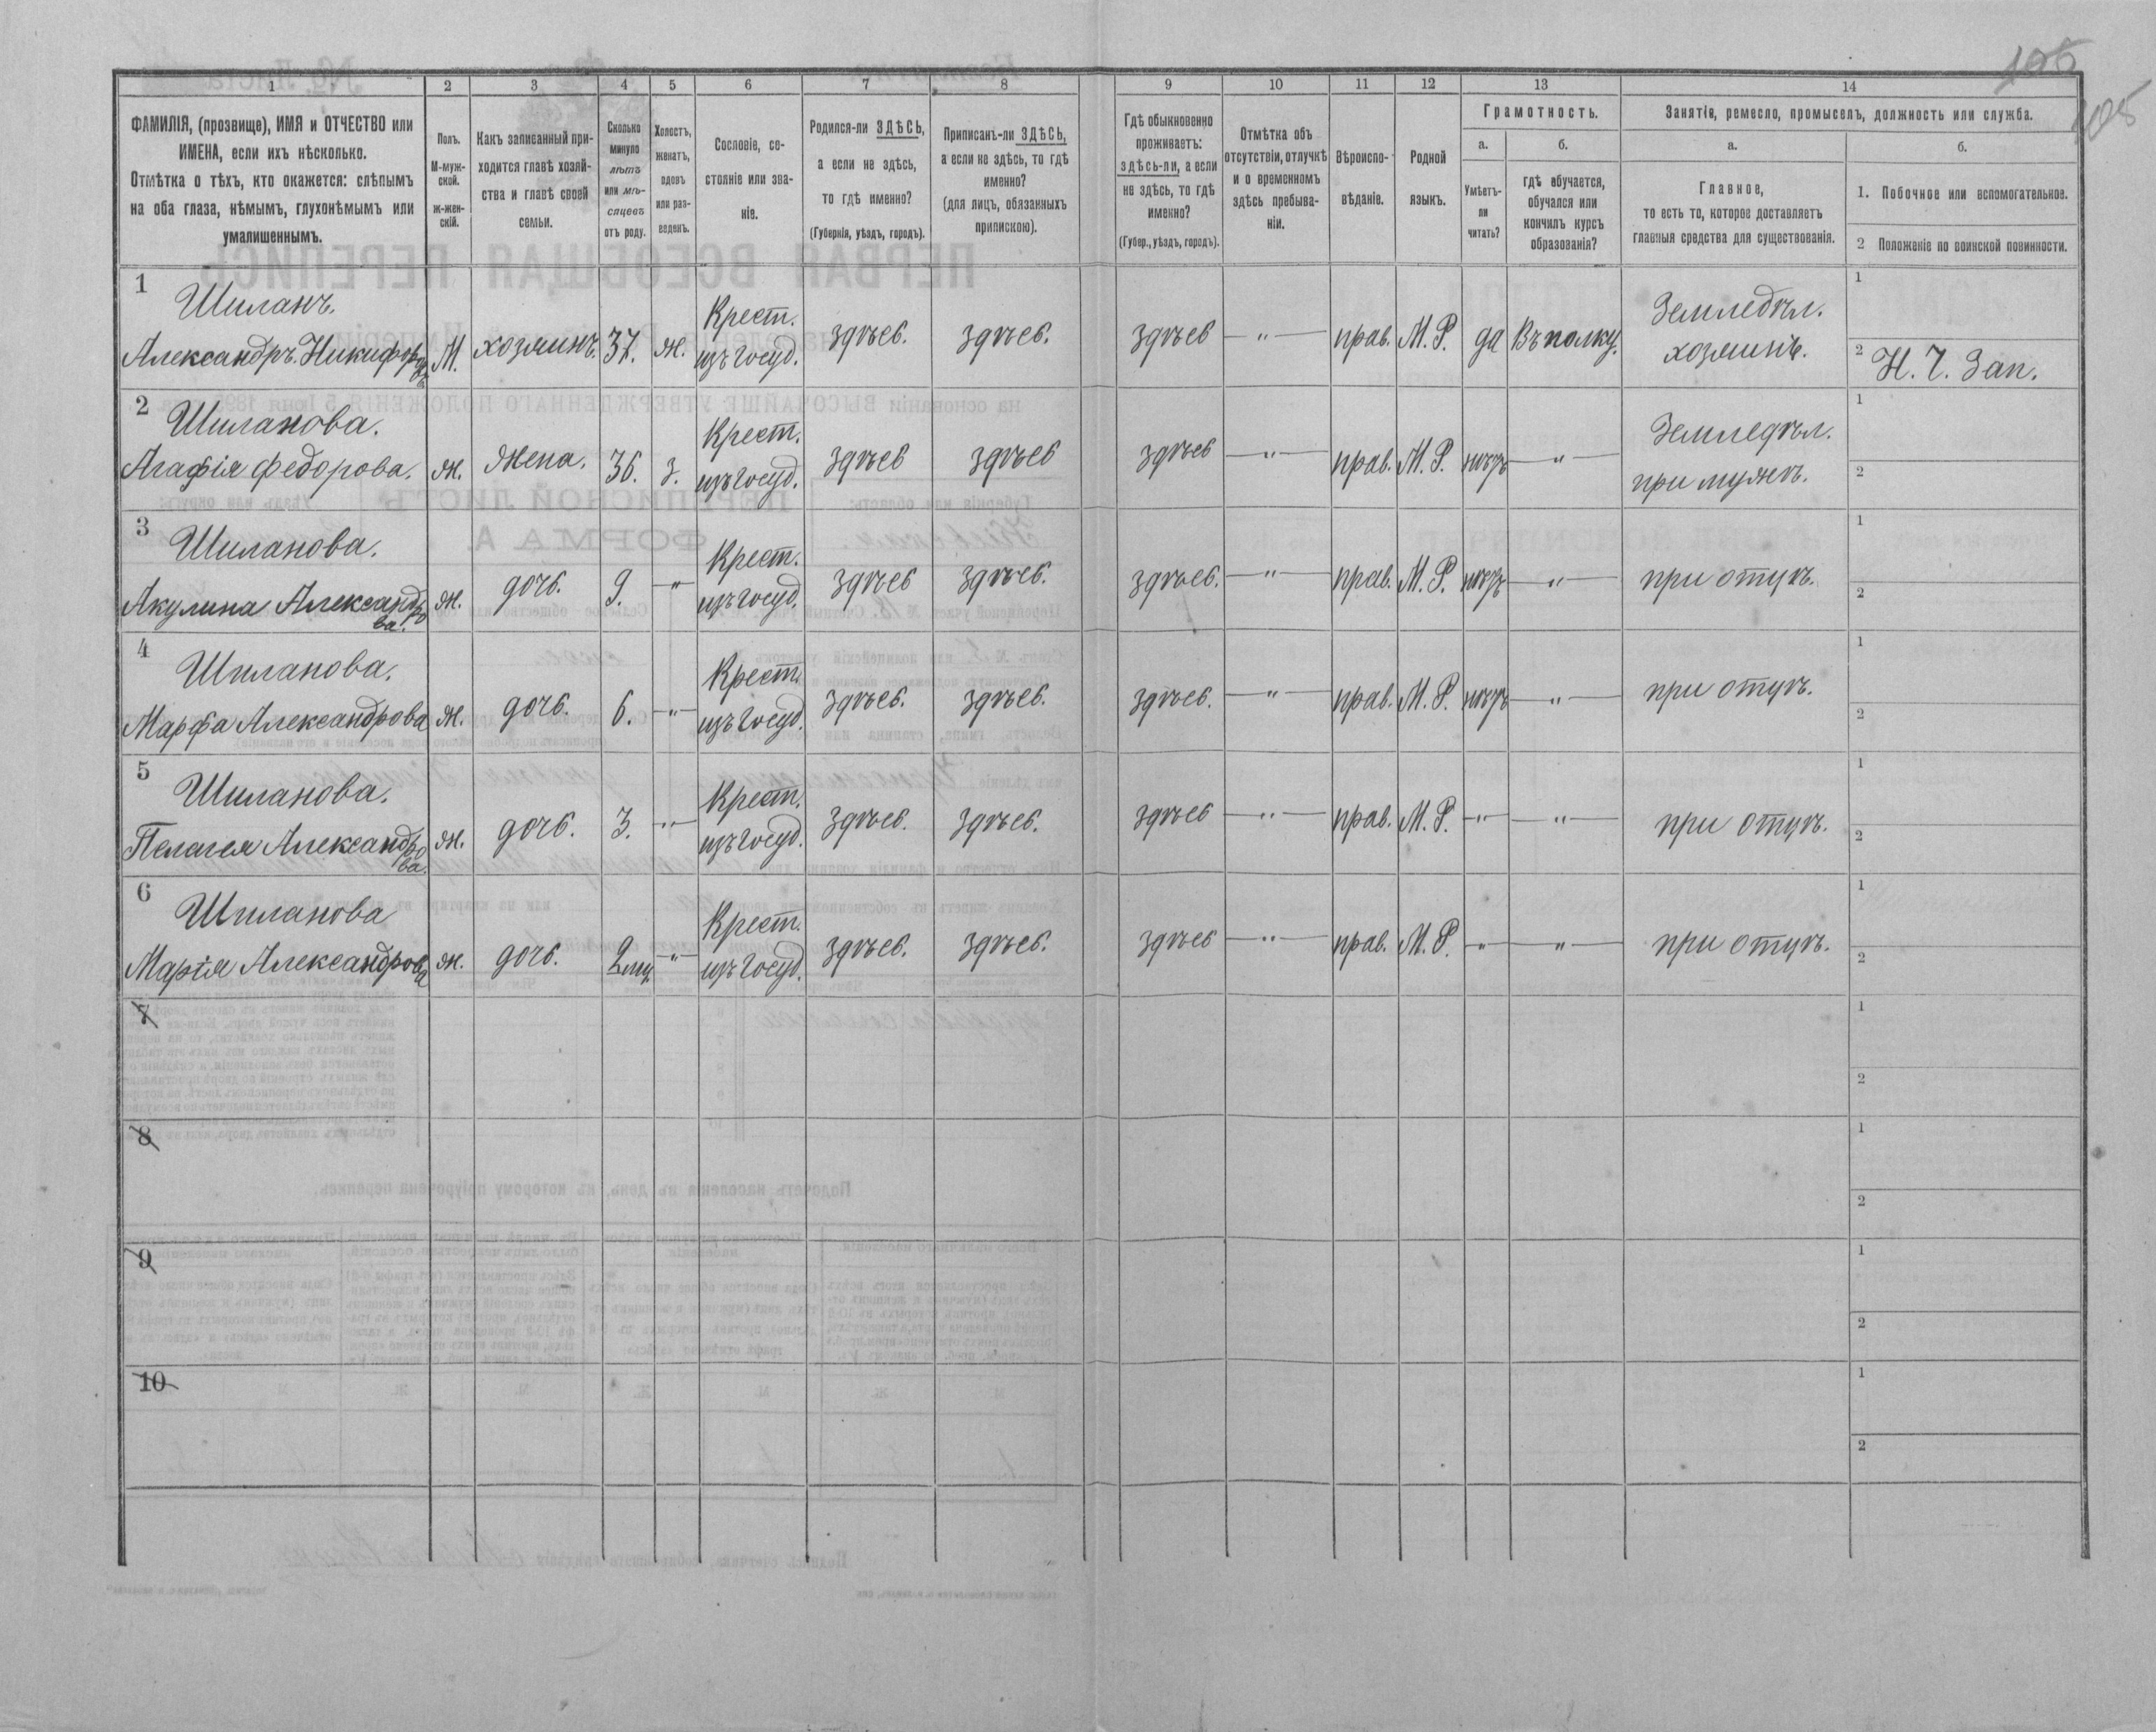 106
105
1 2 3 4 5 6 7 8 9 10 11 12 13 14
ФАМИЛІЯ, (прозвище), ИМЯ и ОТЧЕСТВО или
ИМЕНА, если ихъ нѣсколько.
Отмѣтка о тѣхъ, кто окажется: слѣпымъ
на оба глаза, нѣмымъ, глухонѣмымъ или
умалишеннымъ.
Полъ.
М-муж-
ской.
Ж-жен-
скій.
Какъ записанный при-
ходится главѣ хозяй-
ства и главѣ своей
семьи.
Сколько
минуло
лѣтъ
или мѣ-
сяцевъ
отъ роду.
Холостъ,
женатъ,
вдовъ
или раз-
веденъ.
Сословіе, со-
стояніе или зва-
ніе.
Родился-ли ЗДѢСЬ,
а если не здѣсь,
то гдѣ именно?
(Губернія, уѣздъ, городъ).
Приписанъ-ли ЗДѢСЬ,
а если не здѣсь, то гдѣ
именно?
(для лицъ, обязанныхъ
припискою).
Гдѣ обыкновенно
проживаетъ:
здѣсь-ли, а если
не здѣсь, то гдѣ
именно?
(Губер., уѣздъ, городъ).
Отмѣтка объ
отсутствіи, отлучкѣ
и о временномъ
здѣсь пребыва-
ніи.
Вѣроиспо-
вѣданіе.
Родной
языкъ.
Грамотность.
а.
Умѣетъ-
ли
читать?
б.
гдѣ обучается,
обучался или
кончилъ курсъ
образованія?
Занятіе, ремесло, промыселъ, должность или служба.
а.
Главное,
то есть то, которое доставляетъ
главныя средства для существованія.
б.
1. Побочное или вспомогательное.
2 Положеніе по воинской повинности.
1 Шиланъ. Крест. Земледѣл. 1
Александръ Никифоровъ М. хозяинъ. 37. ж. изъ госуд. здѣсь. здѣсь. здѣсь — " — прав. М. Р. да Въ полку. хозяинъ. 2 Н. Ч. Зап.
2 Шиланова. Крест. Земледѣл. 1
Агафія Федорова. ж. жена. 36. з. изъ госуд. здѣсь здѣсь здѣсь — " — прав. М. Р. нѣтъ — " — при мужѣ. 2
3 Шиланова. Крест. 1
Акулина Александрова. ж. дочь. 9. — " изъ госуд. здѣсь здѣсь. здѣсь. — " — прав. М. Р. нѣтъ — " — при отцѣ. 2
4 Шиланова. Крест. 1
Марфа Александрова ж. дочь. 6. — " — изъ госуд. здѣсь. здѣсь. здѣсь. — " — прав. М. Р. нѣтъ — " — при отцѣ. 2
5 Шиланова. Крест. 1
Пелагея Александрова. ж. дочь. 3. — " — изъ госуд. здѣсь. здѣсь. здѣсь — " — прав. М. Р. — " — — " — при отцѣ. 2
6 Шиланова Крест. 1
Марія Александрова ж. дочь. 2 мц. — " — изъ госуд. здѣсь. здѣсь. здѣсь — " — прав. М. Р. — " — — " — при отцѣ. 2
7 1
2
8 1
2
9 1
2
10 1
2